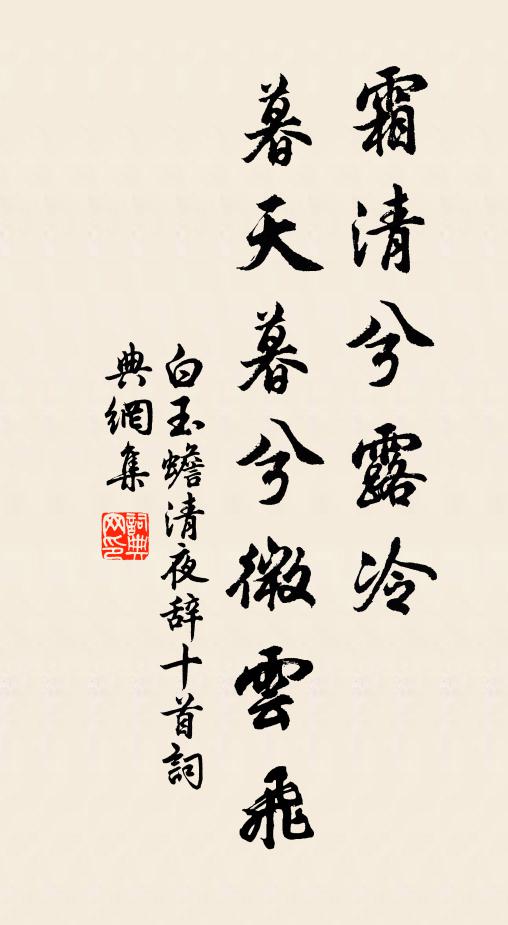 霜清兮露冷
暮天暮兮微雲飛
白玉蟾清夜辞十首詞
典網集
詞典
网印